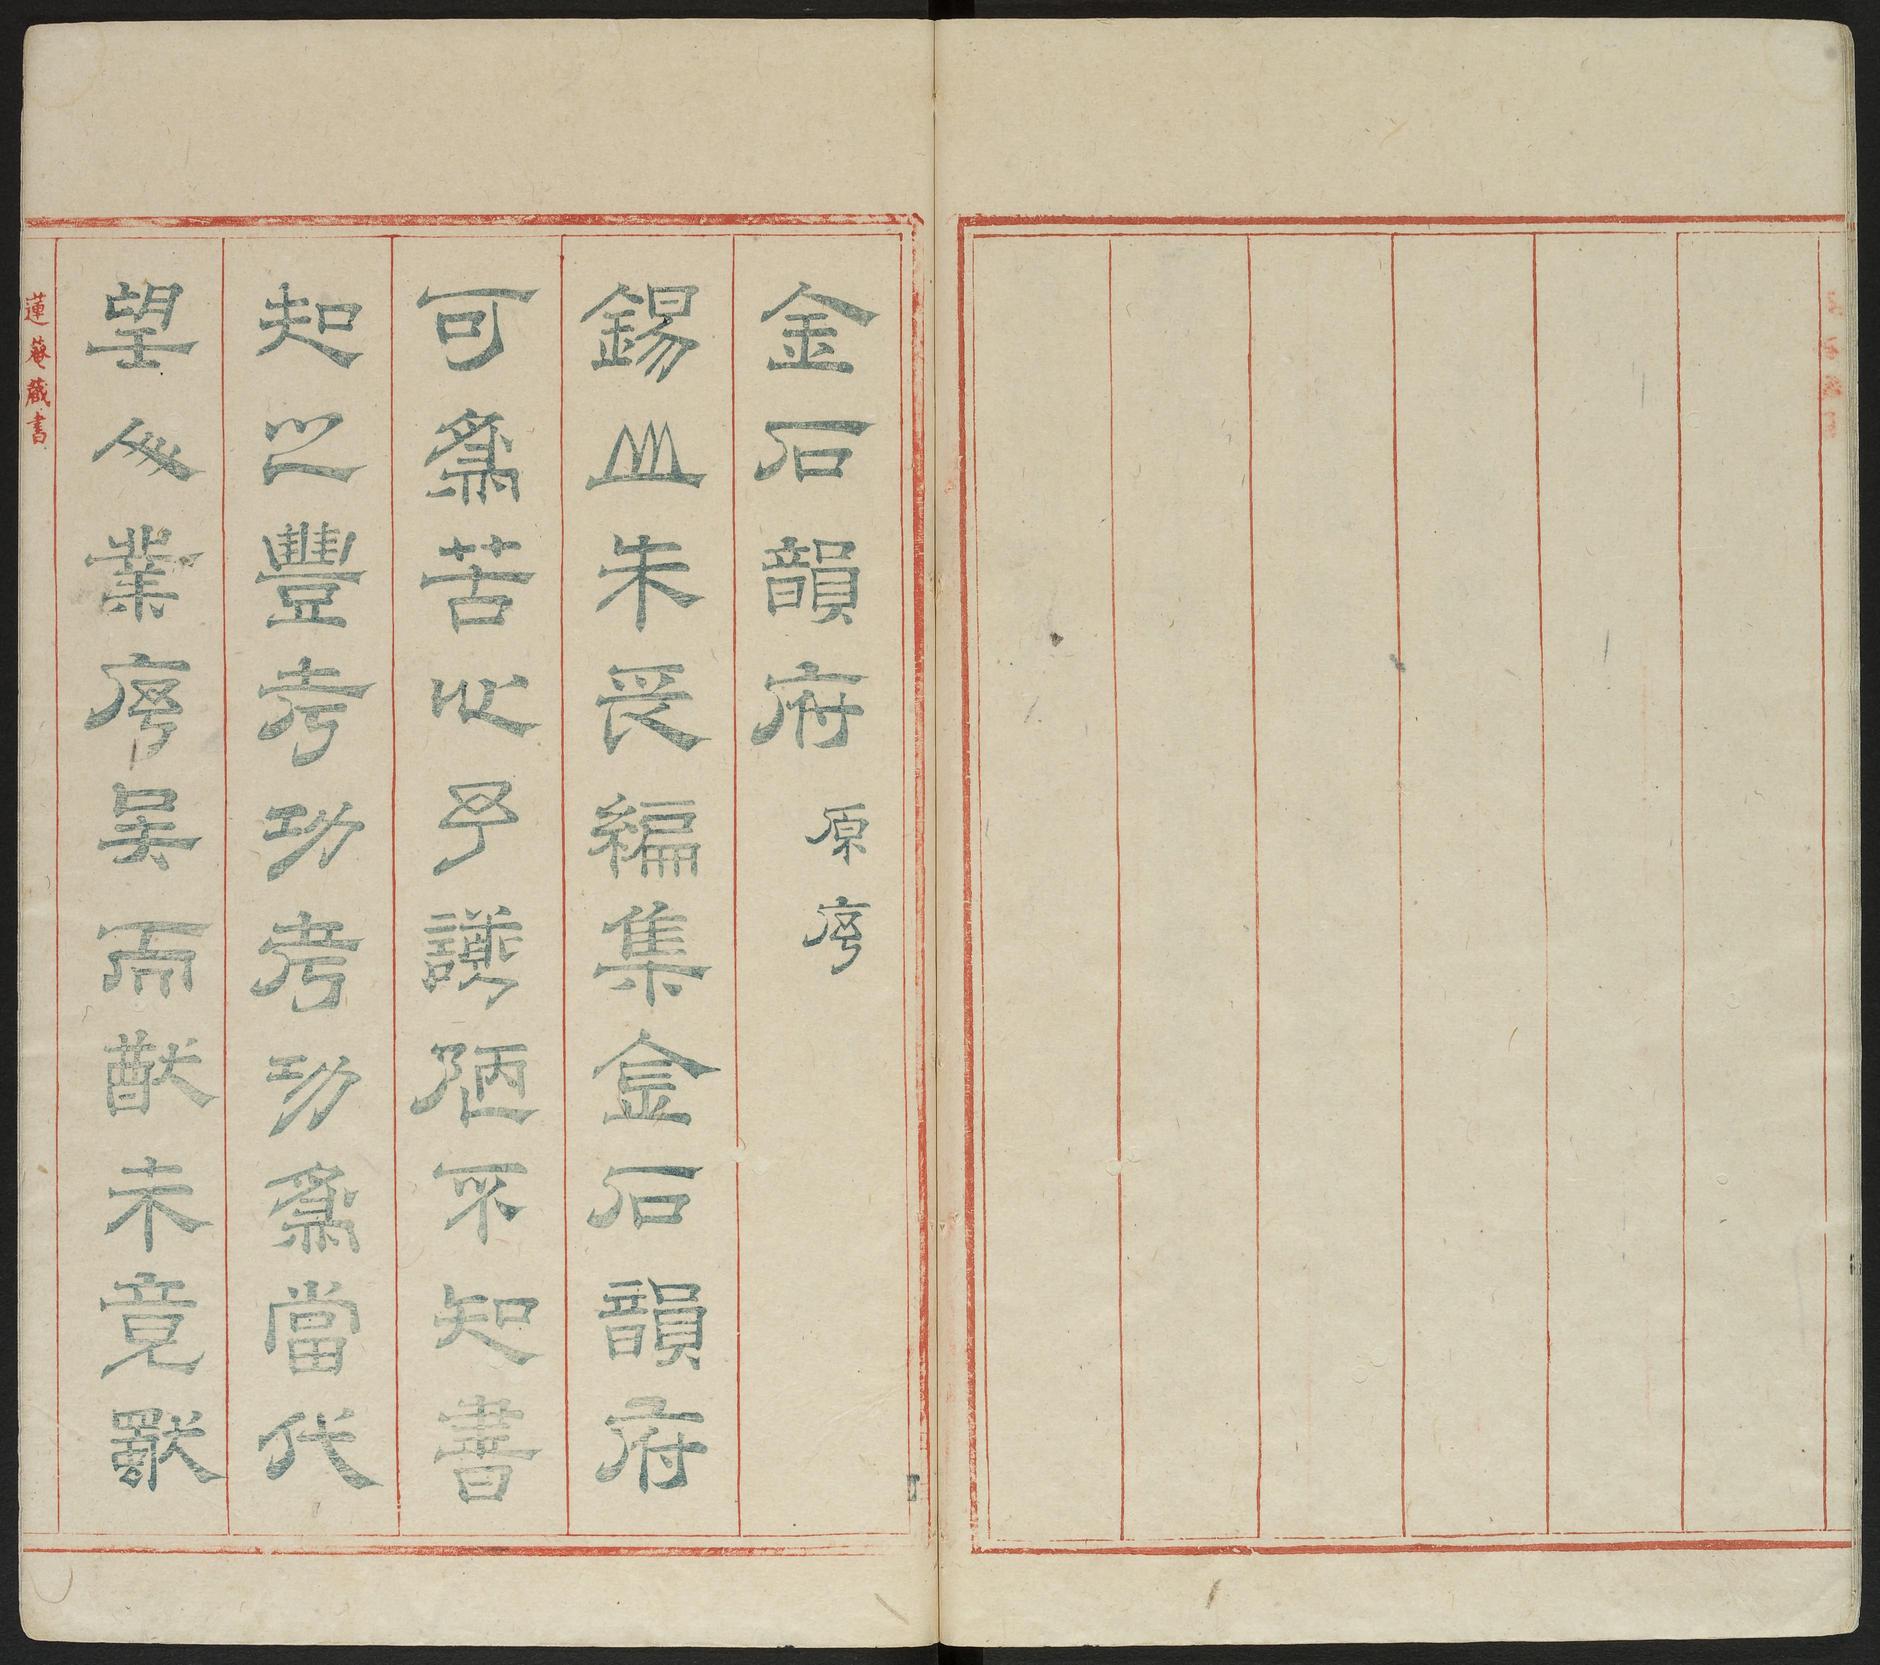 金石韻府 原序
錫山朱編集金石韻府
可爲苦心予譾陋不知書
知之豐考功考功爲當代
望業序矣而猷未竟
蓮菴藏書